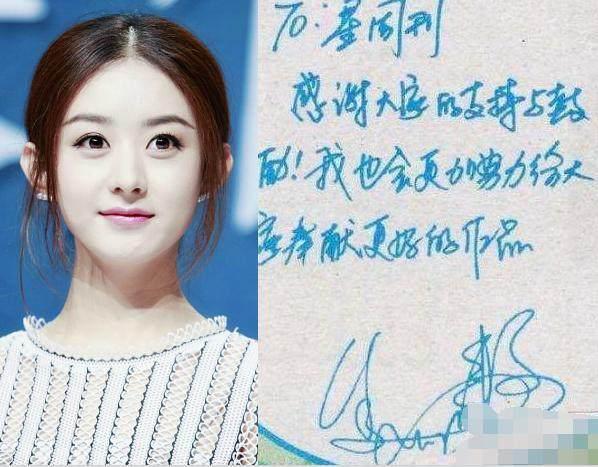 TO:星周刊
感谢大家的支持与鼓
励!我也会更加努力给大
家奉献更好的作品